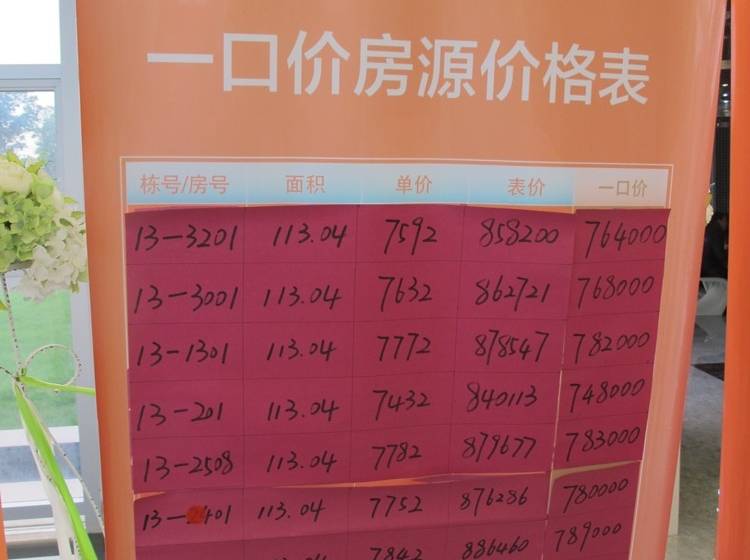 一口价房源价格表
栋号/房号 面积 单价 表价 一口价
13-3201 113.04 7592 858200 764000
13-3001 113.04 7632 862721 768000
13-1301 113.04 7772 878547 782000
13-201 113.04 7432 840113 748000
13-2508 113.04 7782 879677 783000
113.04 7752 876286 780000
7842 886460 789000